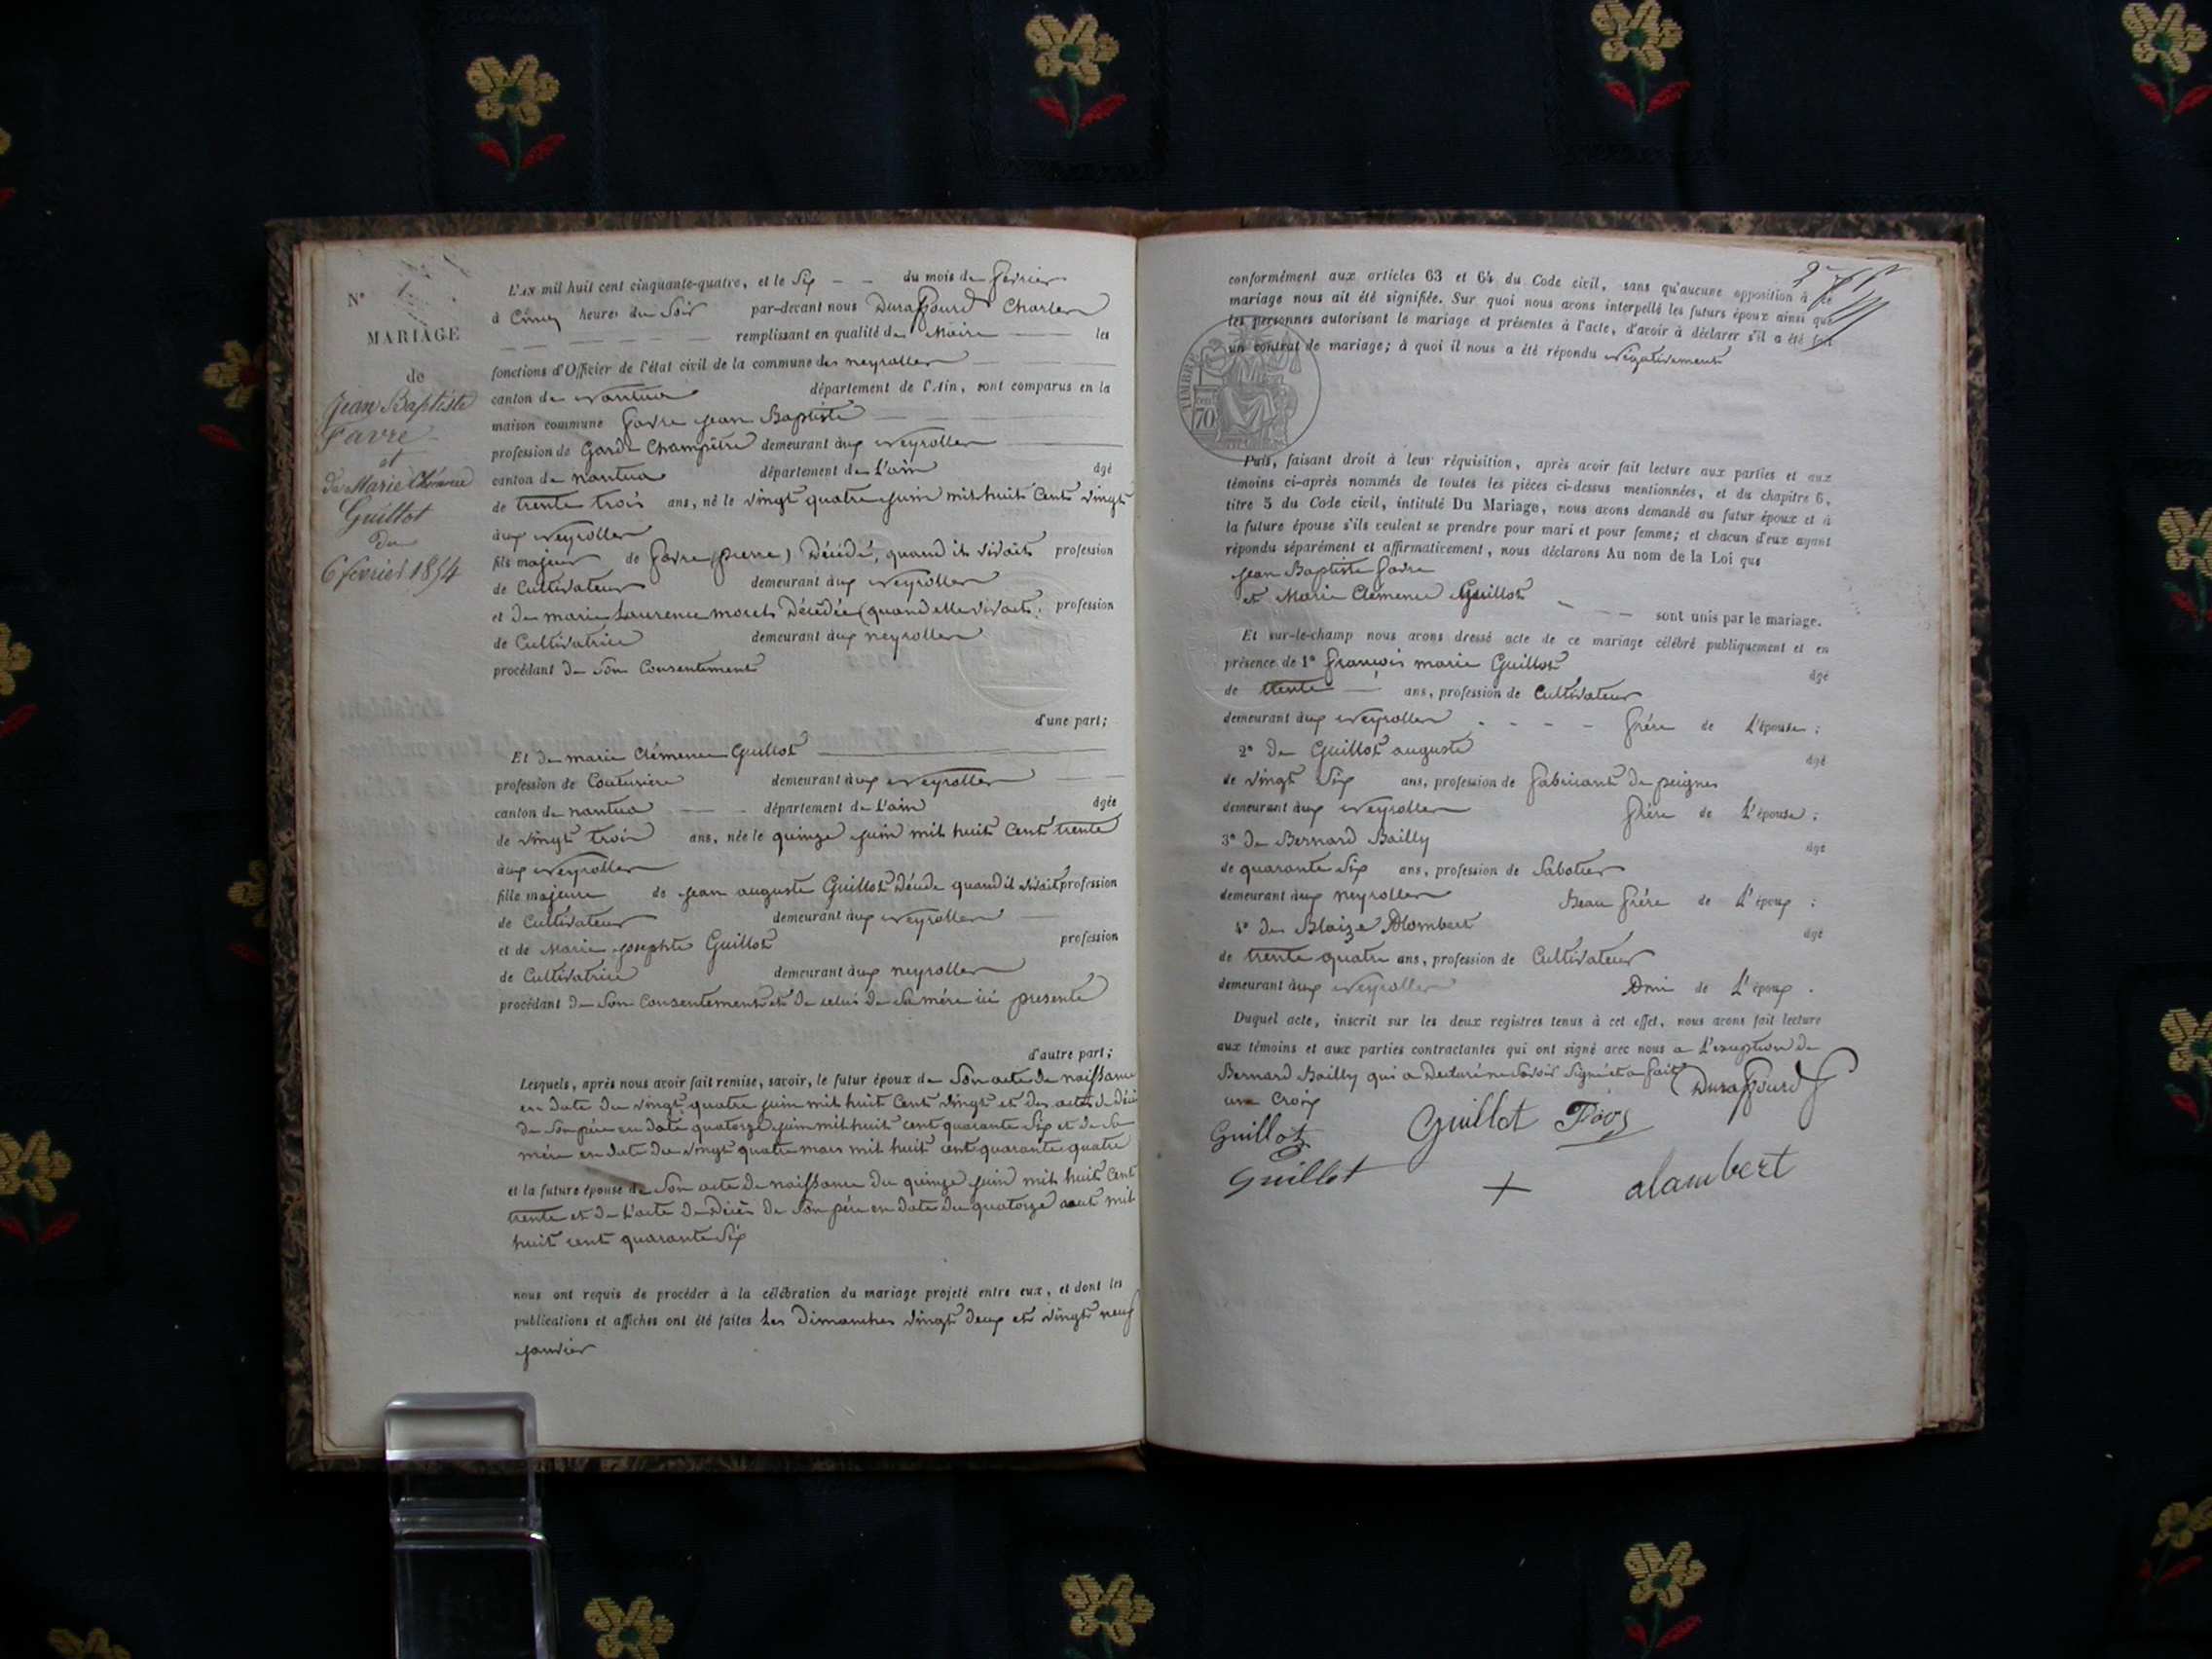 N° 1
MARIAGE
de
Jean Baptiste
Favre
et
de Marie Clémence
Guillot
du
6 fevrier 1854
L'AN mil huit cent cinquante-quatre, et le six — — du mois de fevrier
à Cinq heures du Soir par-devant nous Duraffourd Charles
remplissant en qualité de Maire — les
fonctions d'Officier de l'état civil de la commune des neyrolles
canton de nantua département de l'Ain, sont comparus en la
maison commune favre jean Baptiste
profession de Garde Champêtre demeurant aux neyrolles
canton de nantua département de L'ain âgé
de trente trois ans, né le vingt quatre juin mil huit Cent vingt
aux neyrolles
fils majeur de favre (pierre) Décédé, quand il vivait profession
de Cultivateur demeurant aux neyrolles
et de marie Laurence morel Décédée (quand elle vivait) profession
de Cultivatrice demeurant aux neyrolles
procédant de Son Consentement
d'une part;
Et de marie Clémence Guillot
profession de Couturière demeurant aux neyrolles
canton de nantua — département de L'ain âgée
de vingt trois ans, née le quinze juin mil huit Cent trente
aux neyrolles
fille majeure de jean auguste Guillot Décédé quand il vivait profession
de Cultivateur demeurant aux neyrolles
et de Marie josephte Guillot profession
de Cultivatrice demeurant aux neyrolles
procédant de Son Consentement et de celui de Sa mère ici presente
d'autre part;
Lesquels, après nous avoir fait remise, savoir, le futur époux de Son acte de naissance
en date du vingt quatre juin mil huit Cent vingt et des actes de décès
de Son père en date quatorze juin mil huit cent quarante Six et de Sa
mère en date du vingt quatre mars mil huit cent quarante quatre
et la future épouse de Son acte de naissance du quinze juin mil huit Cent
trente et de L'acte de Décès de Son père en date du quatorze aout mil
huit cent quarante Six
nous ont requis de procéder à la célébration du mariage projeté entre eux, et dont les
publications et affiches ont été faites Les Dimanches vingt deux et vingt neuf
janvier
conformément aux articles 63 et 64 du Code civil, sans qu'aucune opposition à ce
mariage nous ait été signifiée. Sur quoi nous avons interpellé les futurs époux ainsi que
les personnes autorisant le mariage et présentes à l'acte, d'avoir à déclarer s'il a été fait
un contrat de mariage; à quoi il nous a été répondu négativement
TIMBRE
70
Puis, faisant droit à leur réquisition, après avoir fait lecture aux parties et aux
témoins ci-après nommés de toutes les pièces ci-dessus mentionnées, et du chapitre 6,
titre 5 du Code civil, intitulé Du Mariage, nous avons demandé au futur époux et à
la future épouse s'ils veulent se prendre pour mari et pour femme; et chacun d'eux ayant
répondu séparément et affirmativement, nous déclarons Au nom de la Loi que
jean Baptiste favre
et Marie Clémence Guillot — — — sont unis par le mariage.
Et sur-le-champ nous avons dressé acte de ce mariage célébré publiquement et en
présence de 1° françois marie Guillot âgé
de trente — ans, profession de Cultivateur
demeurant aux neyrolles - - - - frère de L'épouse;
2° de Guillot auguste âgé
de vingt Six ans, profession de fabricant de peignes
demeurant aux neyrolles frère de L'épouse;
3° de Bernard Bailly âgé
de quarante Six ans, profession de Sabotier
demeurant aux neyrolles Beau frère de L'époux;
4° de Blaize Alombert âgé
de trente quatre ans, profession de Cultivateur
demeurant aux neyrolles Ami de L'époux.
Duquel acte, inscrit sur les deux registres tenus à cet effet, nous avons fait lecture
aux témoins et aux parties contractantes qui ont signé avec nous a L'exception de
Bernard Bailly qui a Declaré ne Savoir Signé et a fait Duraffourd
une Croix
Guillot Guillot
Guillot + alambert